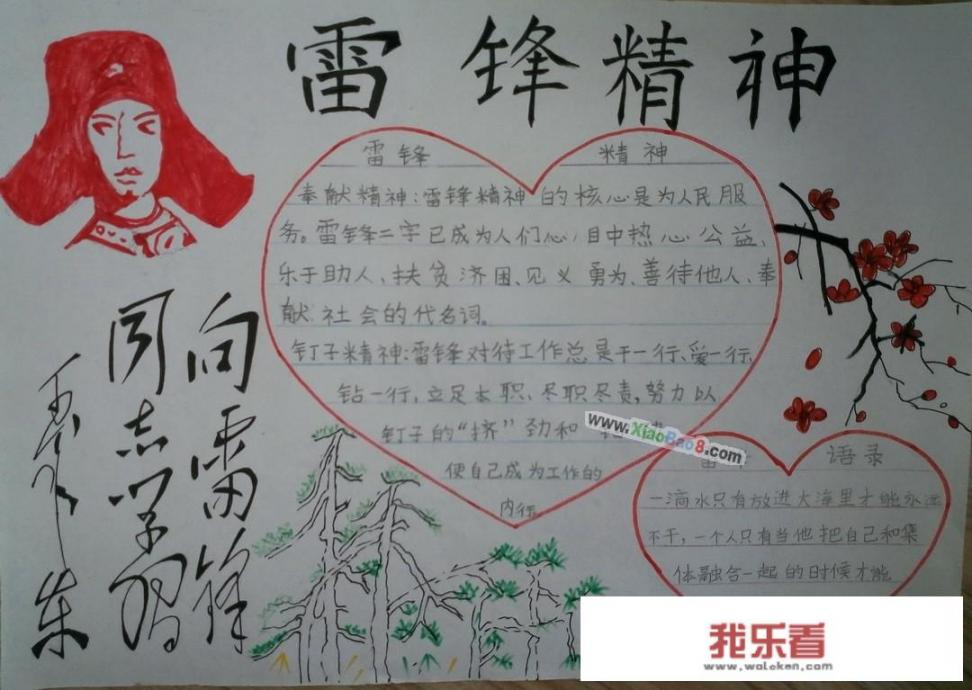 雷锋精神
雷锋 精神
奉献精神:雷锋精神的核心是为人民服
务。雷锋二字已成为人们心目中热心公益、
乐于助人、扶贫济困、见义勇为、善待他人、奉
献社会的代名词。
钉子精神:雷锋对待工作总是干一行、爱一行、
钻一行,立足本职、尽职尽责,努力以
钉子的“挤”劲和
使自己成为工作的
内行。
向雷锋
同志学习
毛泽东
语录
一滴水只有放进大海里才能永远
不干,一个人只有当他把自己和集
体融合一起的时候才能
www.XiaoBao8.com
我乐看
www.woleken.com